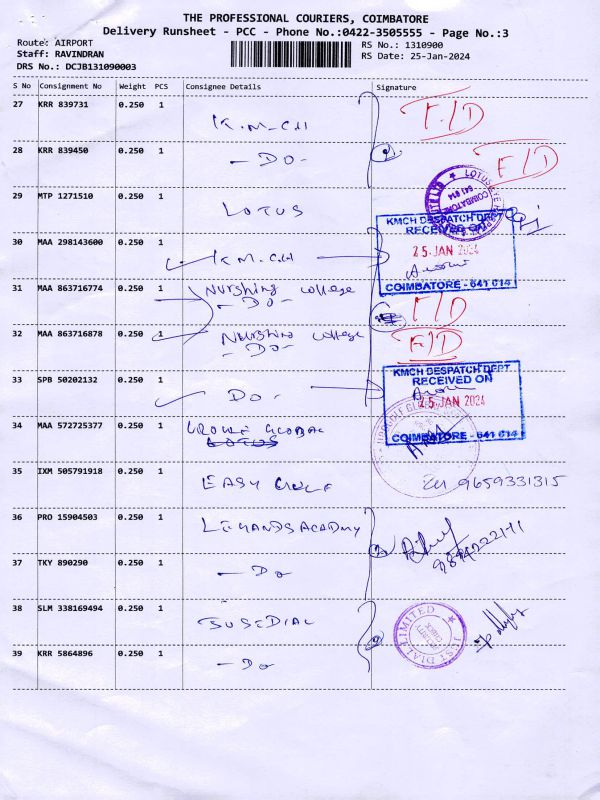 THE PROFESSIONAL COURIERS, COIMBATORE
Delivery Runsheet - PCC - Phone No.:0422-3505555 - Page No.:3
Route: AIRPORT
RS No.: 1310900
Staff: RAVINDRAN
RS Date: 25-Jan-2024
DRS No.: DCJB131090003
S No Consignment No Weight PCS Consignee Details Signature
27 KRR 839731 0.250 1 K.M.C.H F/D
28 KRR 839450 0.250 1 - DO - F/D
29 MTP 1271510 0.250 1 LOTUS
LOTUS EYE
COIMBATORE
641 014
KMCH DESPATCH DEPT
RECEIVED ON
30 MAA 298143600 0.250 1 K.M.C.H
25 JAN 2024
COIMBATORE - 641 014
31 MAA 863716774 0.250 1 Nurshing college
- DO -
F/D
32 MAA 863716878 0.250 1 Nurshing college
- DO -
F/D
KMCH DESPATCH DEPT
RECEIVED ON
33 SPB 50202132 0.250 1 DO -
25 JAN 2024
COIMBATORE - 641 014
34 MAA 572725377 0.250 1 GLOBAL
35 IXM 505791918 0.250 1 EASY 9659331315
36 PRO 15904503 0.250 1 ACADMY
37 TKY 890290 0.250 1 - DO
38 SLM 338169494 0.250 1 JUSEDIAL
JUST DIAL LIMITED
39 KRR 5864896 0.250 1 - DO